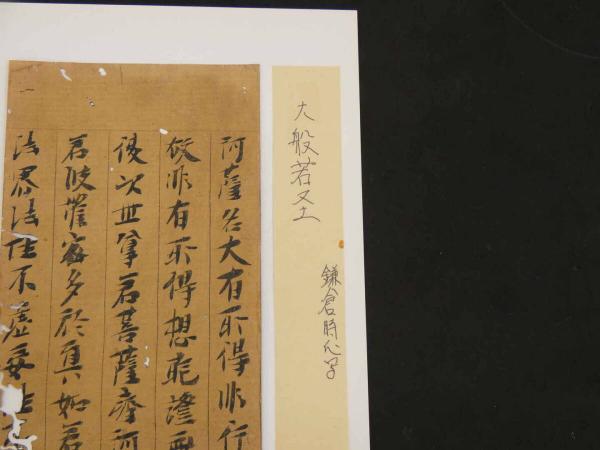 大般若圣
鎌倉時代写
訶薩名大有所得非行
非有所得想能證
復次世尊若菩薩摩訶
若波羅蜜多於真如若
法界法性不虛妄性